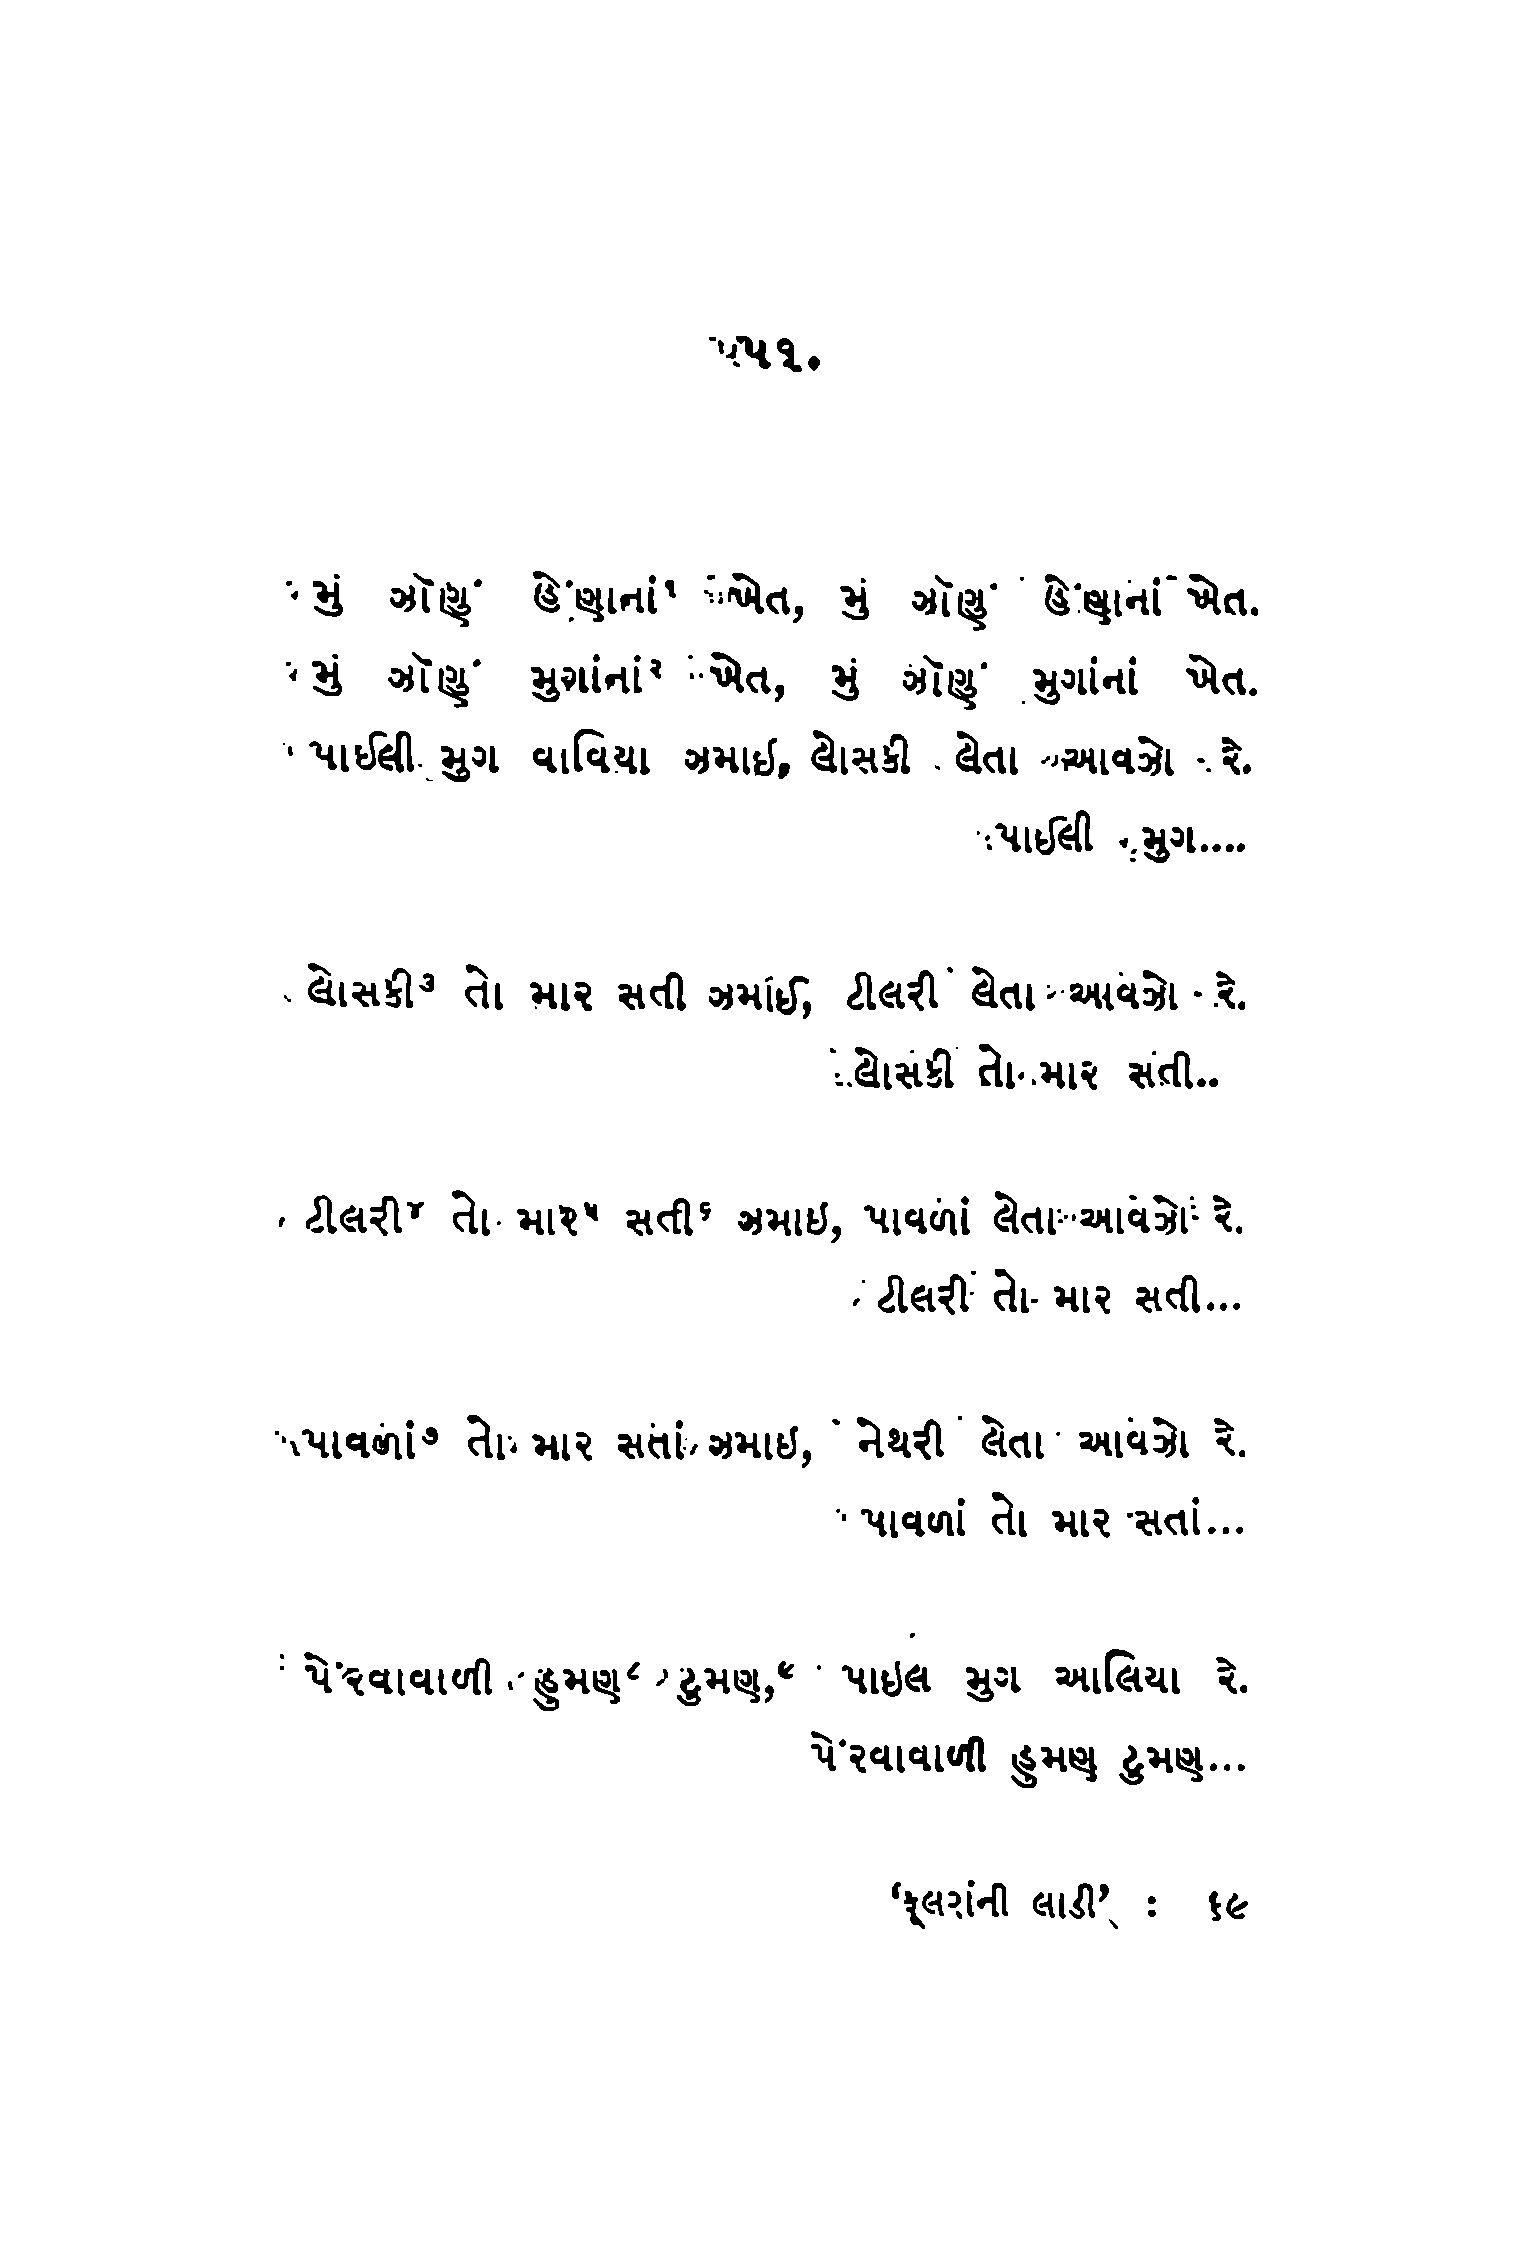 ૫૧.
મું ઝૉણું હેંણાનાં૧ ખેત, મું ઝૉણું હેંણાનાં ખેત.
મું ઝૉણું મુગાંનાં૨ ખેત, મું ઝૉણું મુગાંનાં ખેત.
પાઈલી મુગ વાવિયા ઝમાઇ, લોસકી લેતા આવઝો રે.
પાઈલી મુગ....
લોસકી૩ તો માર સતી ઝમાંઈ, ટીલરી લેતા આવઝો રે.
લોસકી તો માર સતી..
ટીલરી૪ તો માર૫ સતી૬ ઝમાઇ, પાવળાં લેતા આવઝો રે.
ટીલરી તો માર સતી...
પાવળાં૭ તો માર સતાં ઝમાઇ, નેથરી લેતા આવઝો રે.
પાવળાં તો માર સતાં...
પેંરવાવાળી હુમણ૮ ટુમણ,૯ પાઇલ મુગ આલિયા રે.
પેંરવાવાળી હુમણ ટુમણ...
‘ફૂલરાંની લાડી’ : ૬૯